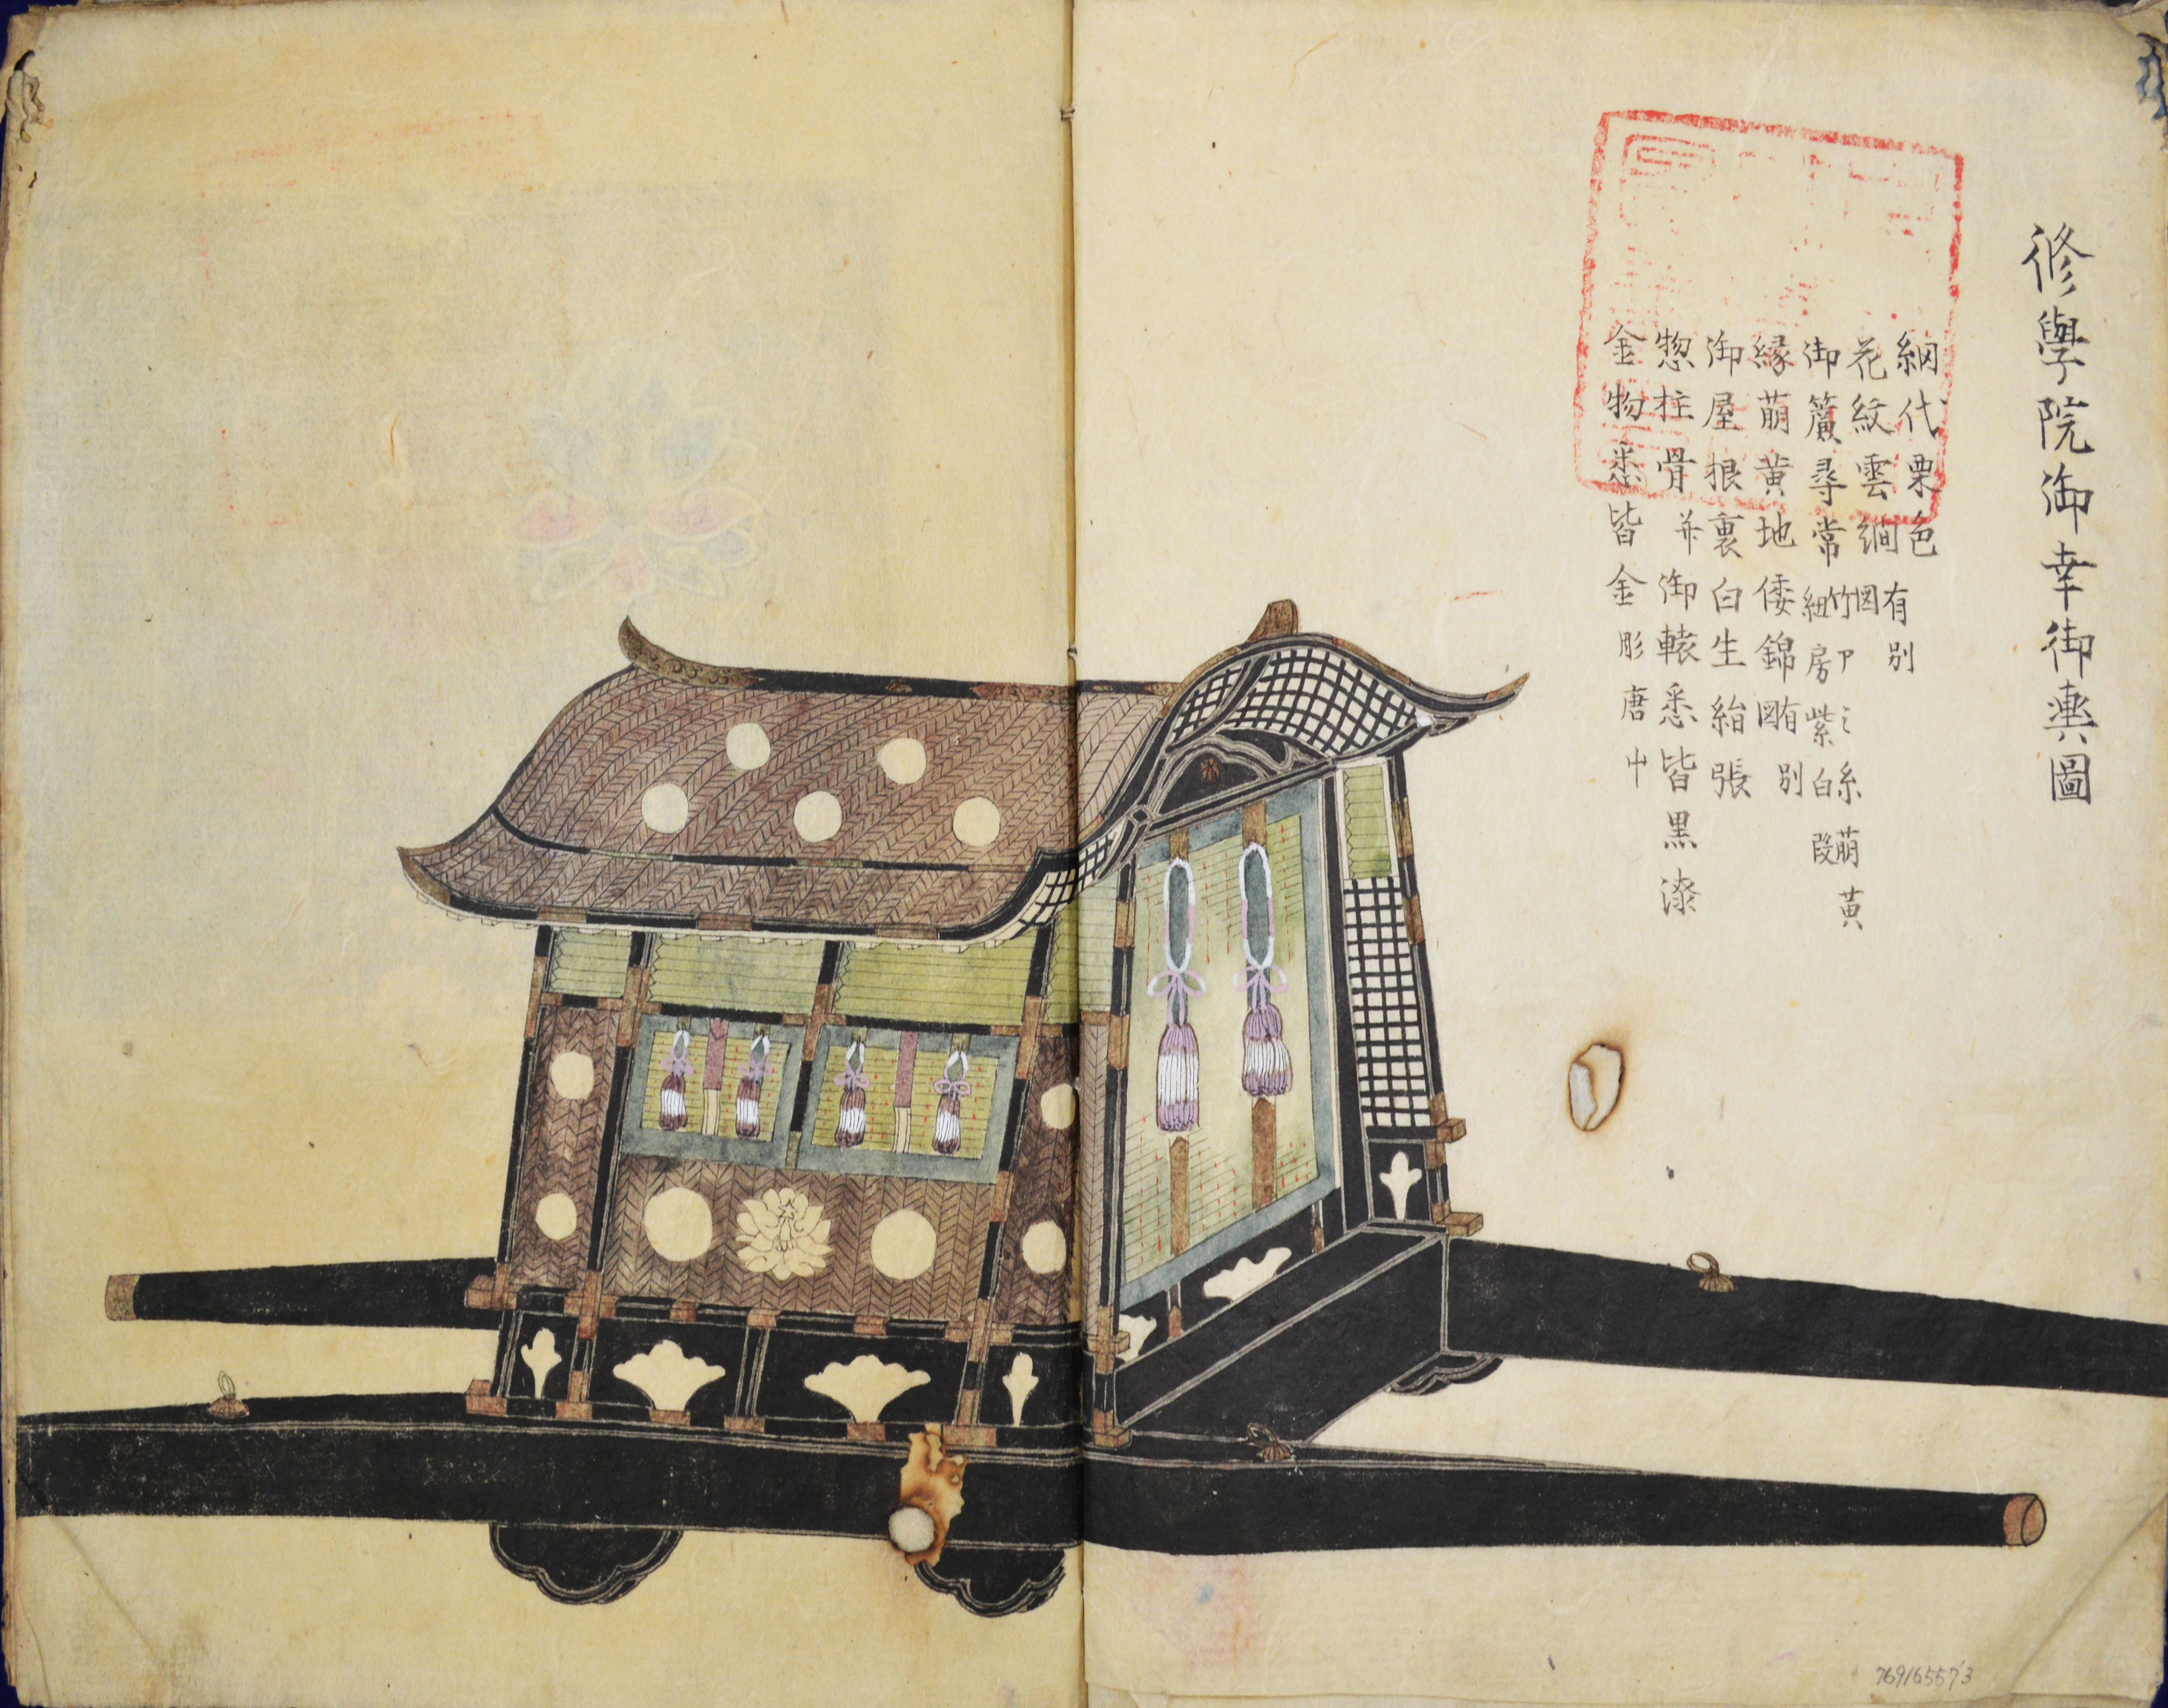 修學院御幸御輿圖
網代栗色
花紋雲繝
有別
図
御簾尋常
竹 糸萌黄
紐房紫白段
縁萌黄地倭錦
有別
図
御屋根裏白生絹張
惣柱骨并御轅悉皆黒漆
金物悉皆金彫唐屮
769165573